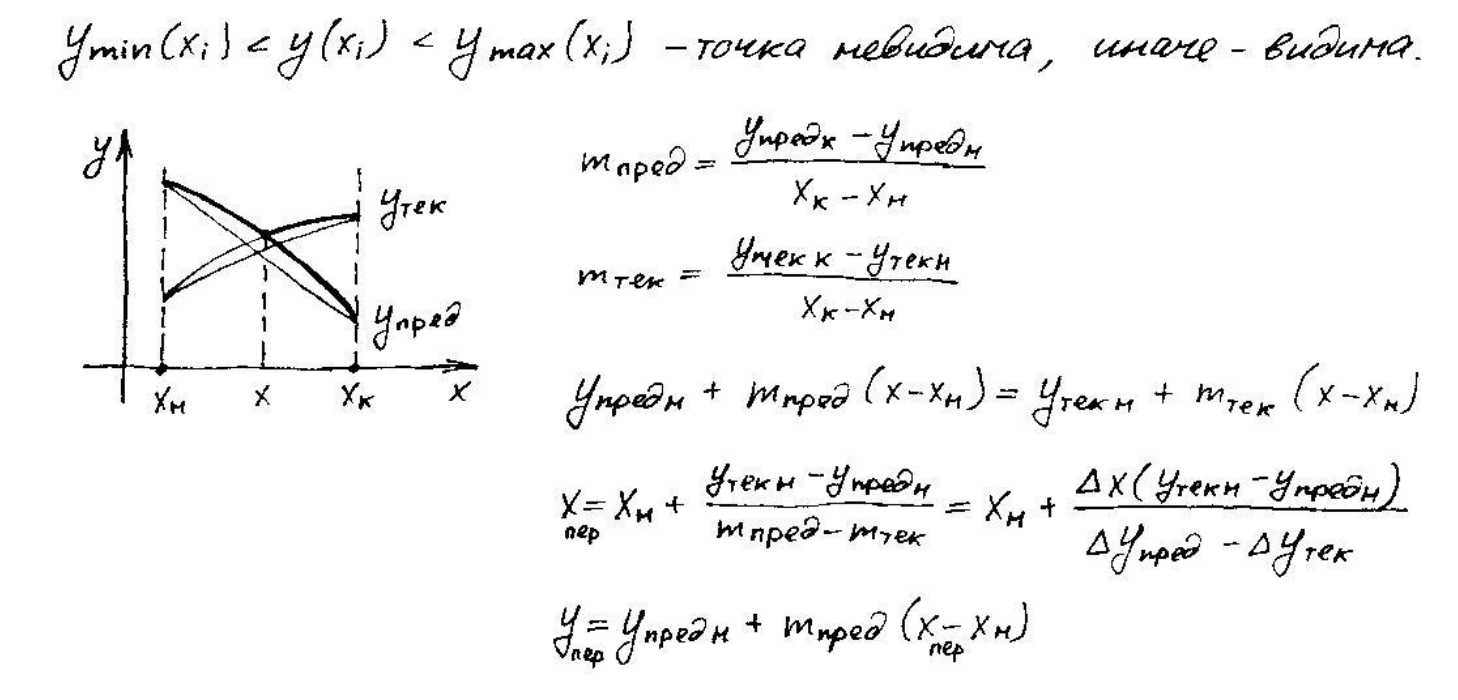 y min(xᵢ) < y(xᵢ) < y max(xᵢ) – точка невидима, иначе – видима.
y
y тек
y пред
xн x xк x
m пред = (y предк – y предн) / (xк – xн)
m тек = (y тек к – y текн) / (xк – xн)
y предн + m пред (x – xн) = y текн + m тек (x – xн)
x пер = xн + (y текн – y предн) / (m пред – m тек) = xн + Δx (y текн – y предн) / (Δy пред – Δy тек)
y пер = y предн + m пред (x пер – xн)